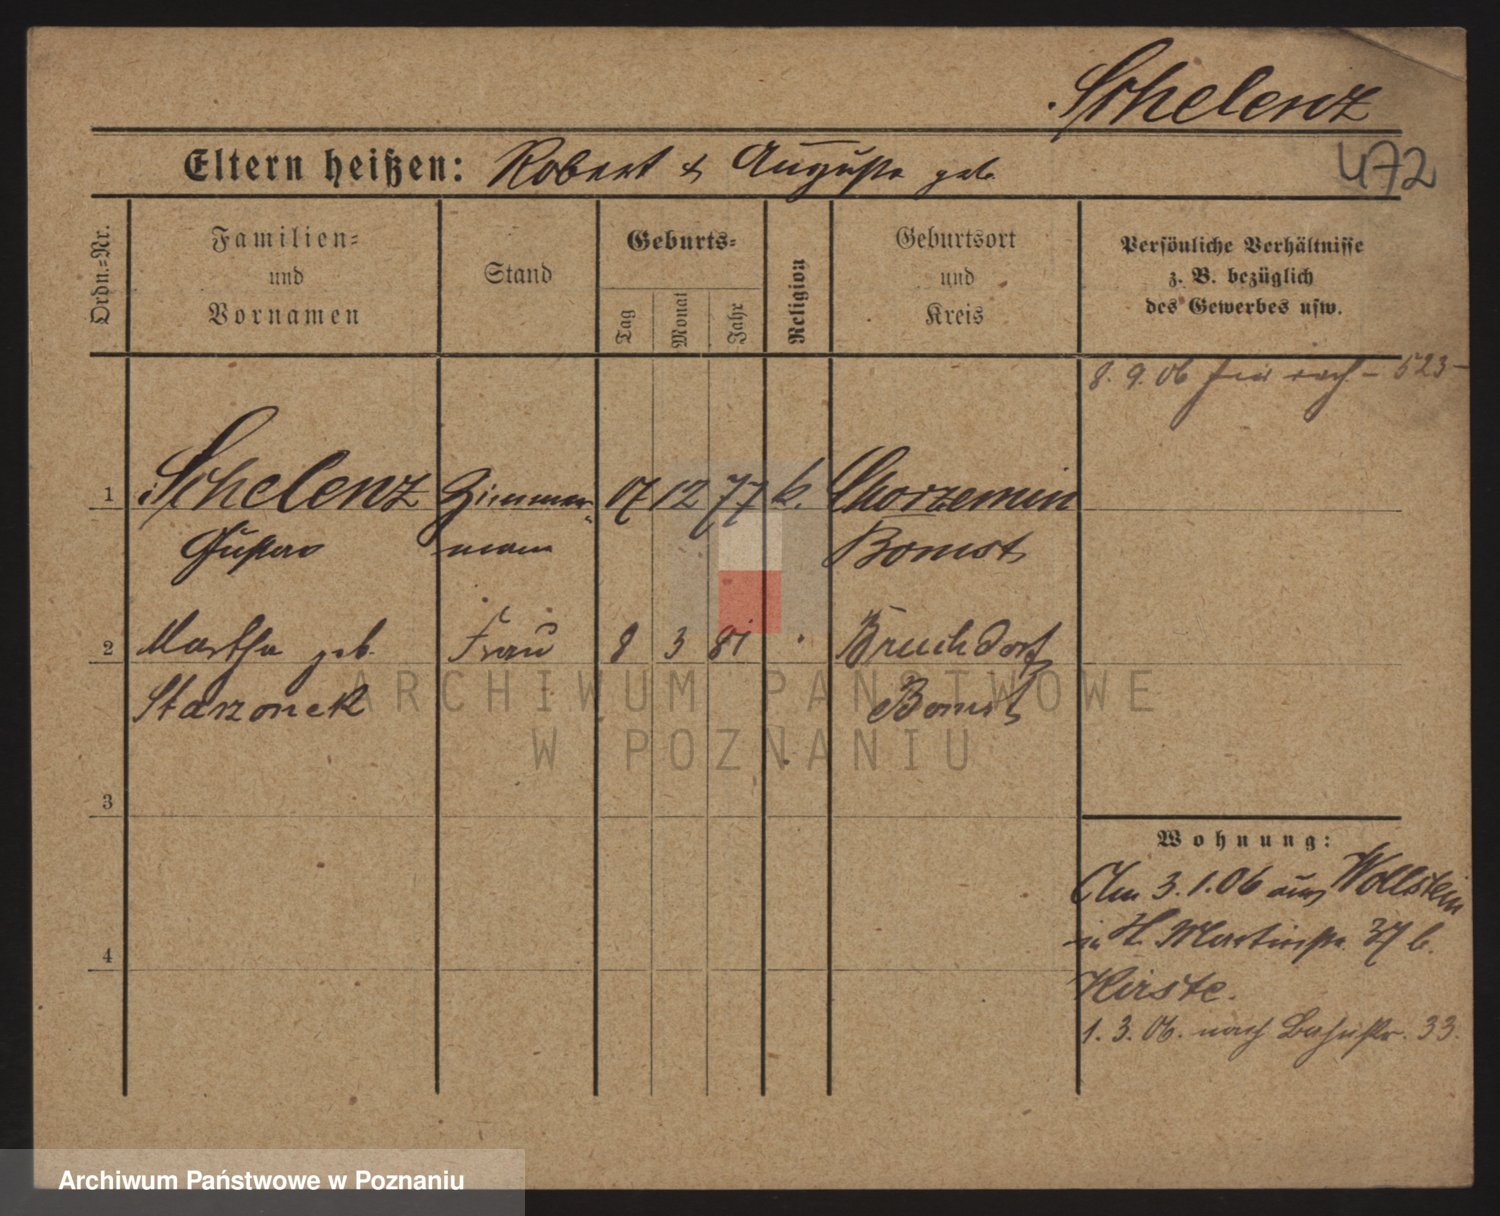 Schelenz
Eltern heißen: Robert & Auguste geb.
472
Ordn.-Nr.
Familien-
und
Vornamen
Stand
Geburts-
Tag
Monat
Jahr
Religion
Geburtsort
und
Kreis
Persönliche Verhältnisse
z. B. bezüglich
des Gewerbes usw.
8. 9. 06 - 523 -
1 Schelenz Zimmer- 17 12 77 k. Chorzemin
Gustav mann Bomst
2 Martha geb. Frau 8 3 81 Bruchdorf
Starzonek Bomst
3
4
Wohnung:
Am 3.1.06 aus Wollstein
in H. Martinstr. 37 b.
Kirste.
1. 3. 06. nach Bahnstr. 33.
ARCHIWUM PAŃSTWOWE
W POZNANIU
Archiwum Państwowe w Poznaniu